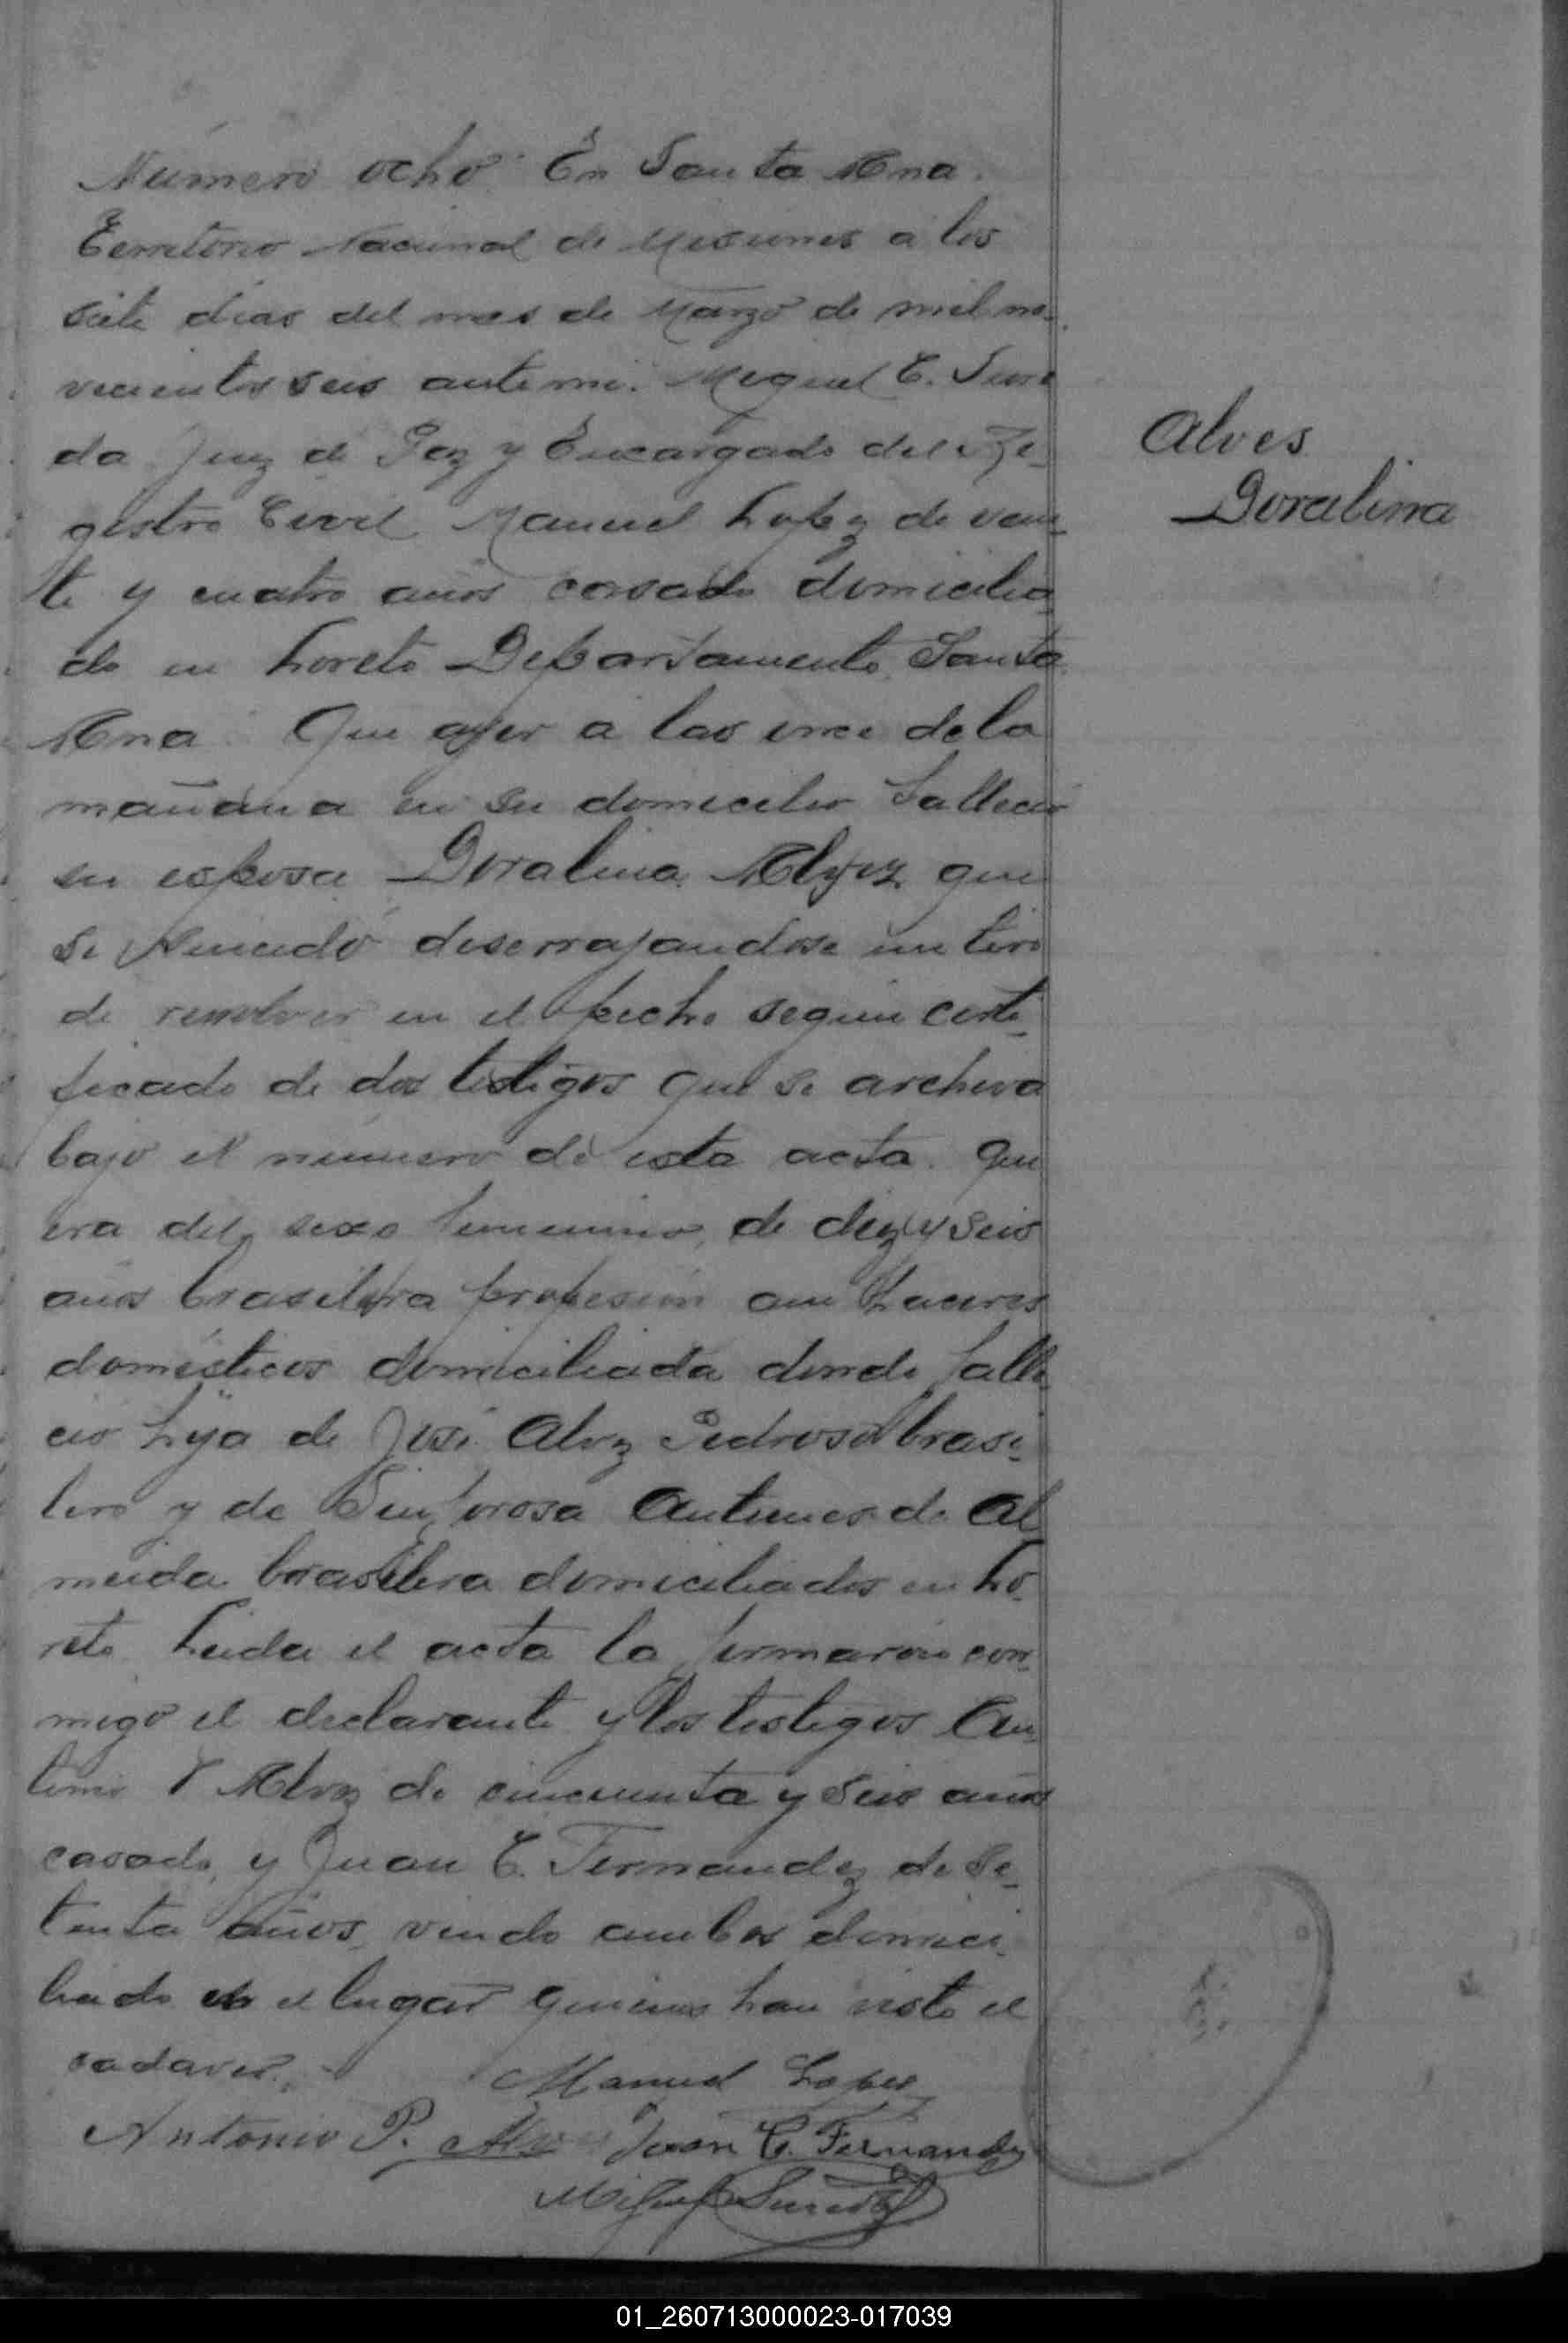 Número ocho. En Santa Ana.
Territorio Nacional de Misiones a los
siete dias del mes de Marzo de mil no-
vecientos seis ante mi. Miguel C.
da Juez de Paz y Encargado del Re-
gistro Civil Manuel Lopez de vein-
te y cuatro años casado domicilia
do en Loreto Departamento Santa
Ana. Que ayer a las once de la
mañana en su domicilio falleció
su esposa Doralina Alvez que
se suicidó deserrajandose un tiro
de revolver en el pecho segun certi-
ficado de dos testigos que se archiva
bajo el número de esta acta. Que
era del sexo femenino, de diez y seis
años brasilera profesion haceres
domésticos domiciliada donde falle
ció hija de José Alvz Pedroso brasi-
lero y de Sinforosa Antunes de Al
meida brasilera domiciliados en Lo-
reto. Leida el acta la firmaron con-
migo el declarante y los testigos An-
tonio P Alvez de cincuenta y seis años
casado, y Juan C. Fernandez de se-
tenta años, viudo ambos domici-
liado en el lugar quienes han visto el
cadaver.
Manuel Lopez
Antonio P. Juan C. Fernandez
Miguel
Alves
Doralina
01_260713000023-017039